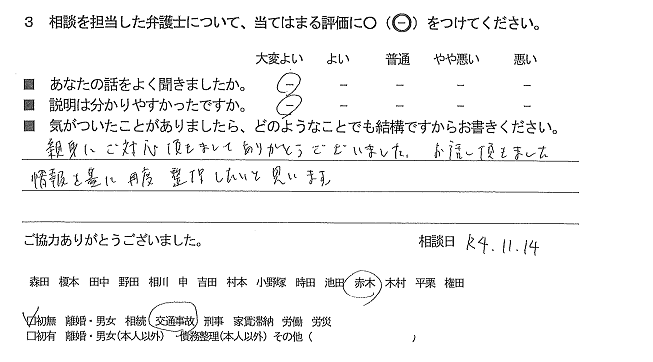 3 相談を担当した弁護士について、当てはまる評価に○（⊖）をつけてください。
大変よい よい 普通 やや悪い 悪い
■ あなたの話をよく聞きましたか。 － － － － －
■ 説明は分かりやすかったですか。 － － － － －
■ 気がついたことがありましたら、どのようなことでも結構ですからお書きください。
親身にご対応頂きましてありがとうございました。お話し頂きました
情報を基に再度整理したいと思います
ご協力ありがとうございました。 相談日 R4.11.14
森田 榎本 田中 野田 相川 申 吉田 村本 小野塚 時田 池田 赤木 木村 平栗 権田
□初無 離婚・男女 相続 交通事故 刑事 家賃滞納 労働 労災
□初有 離婚・男女(本人以外) ・債務整理(本人以外) その他（ ）